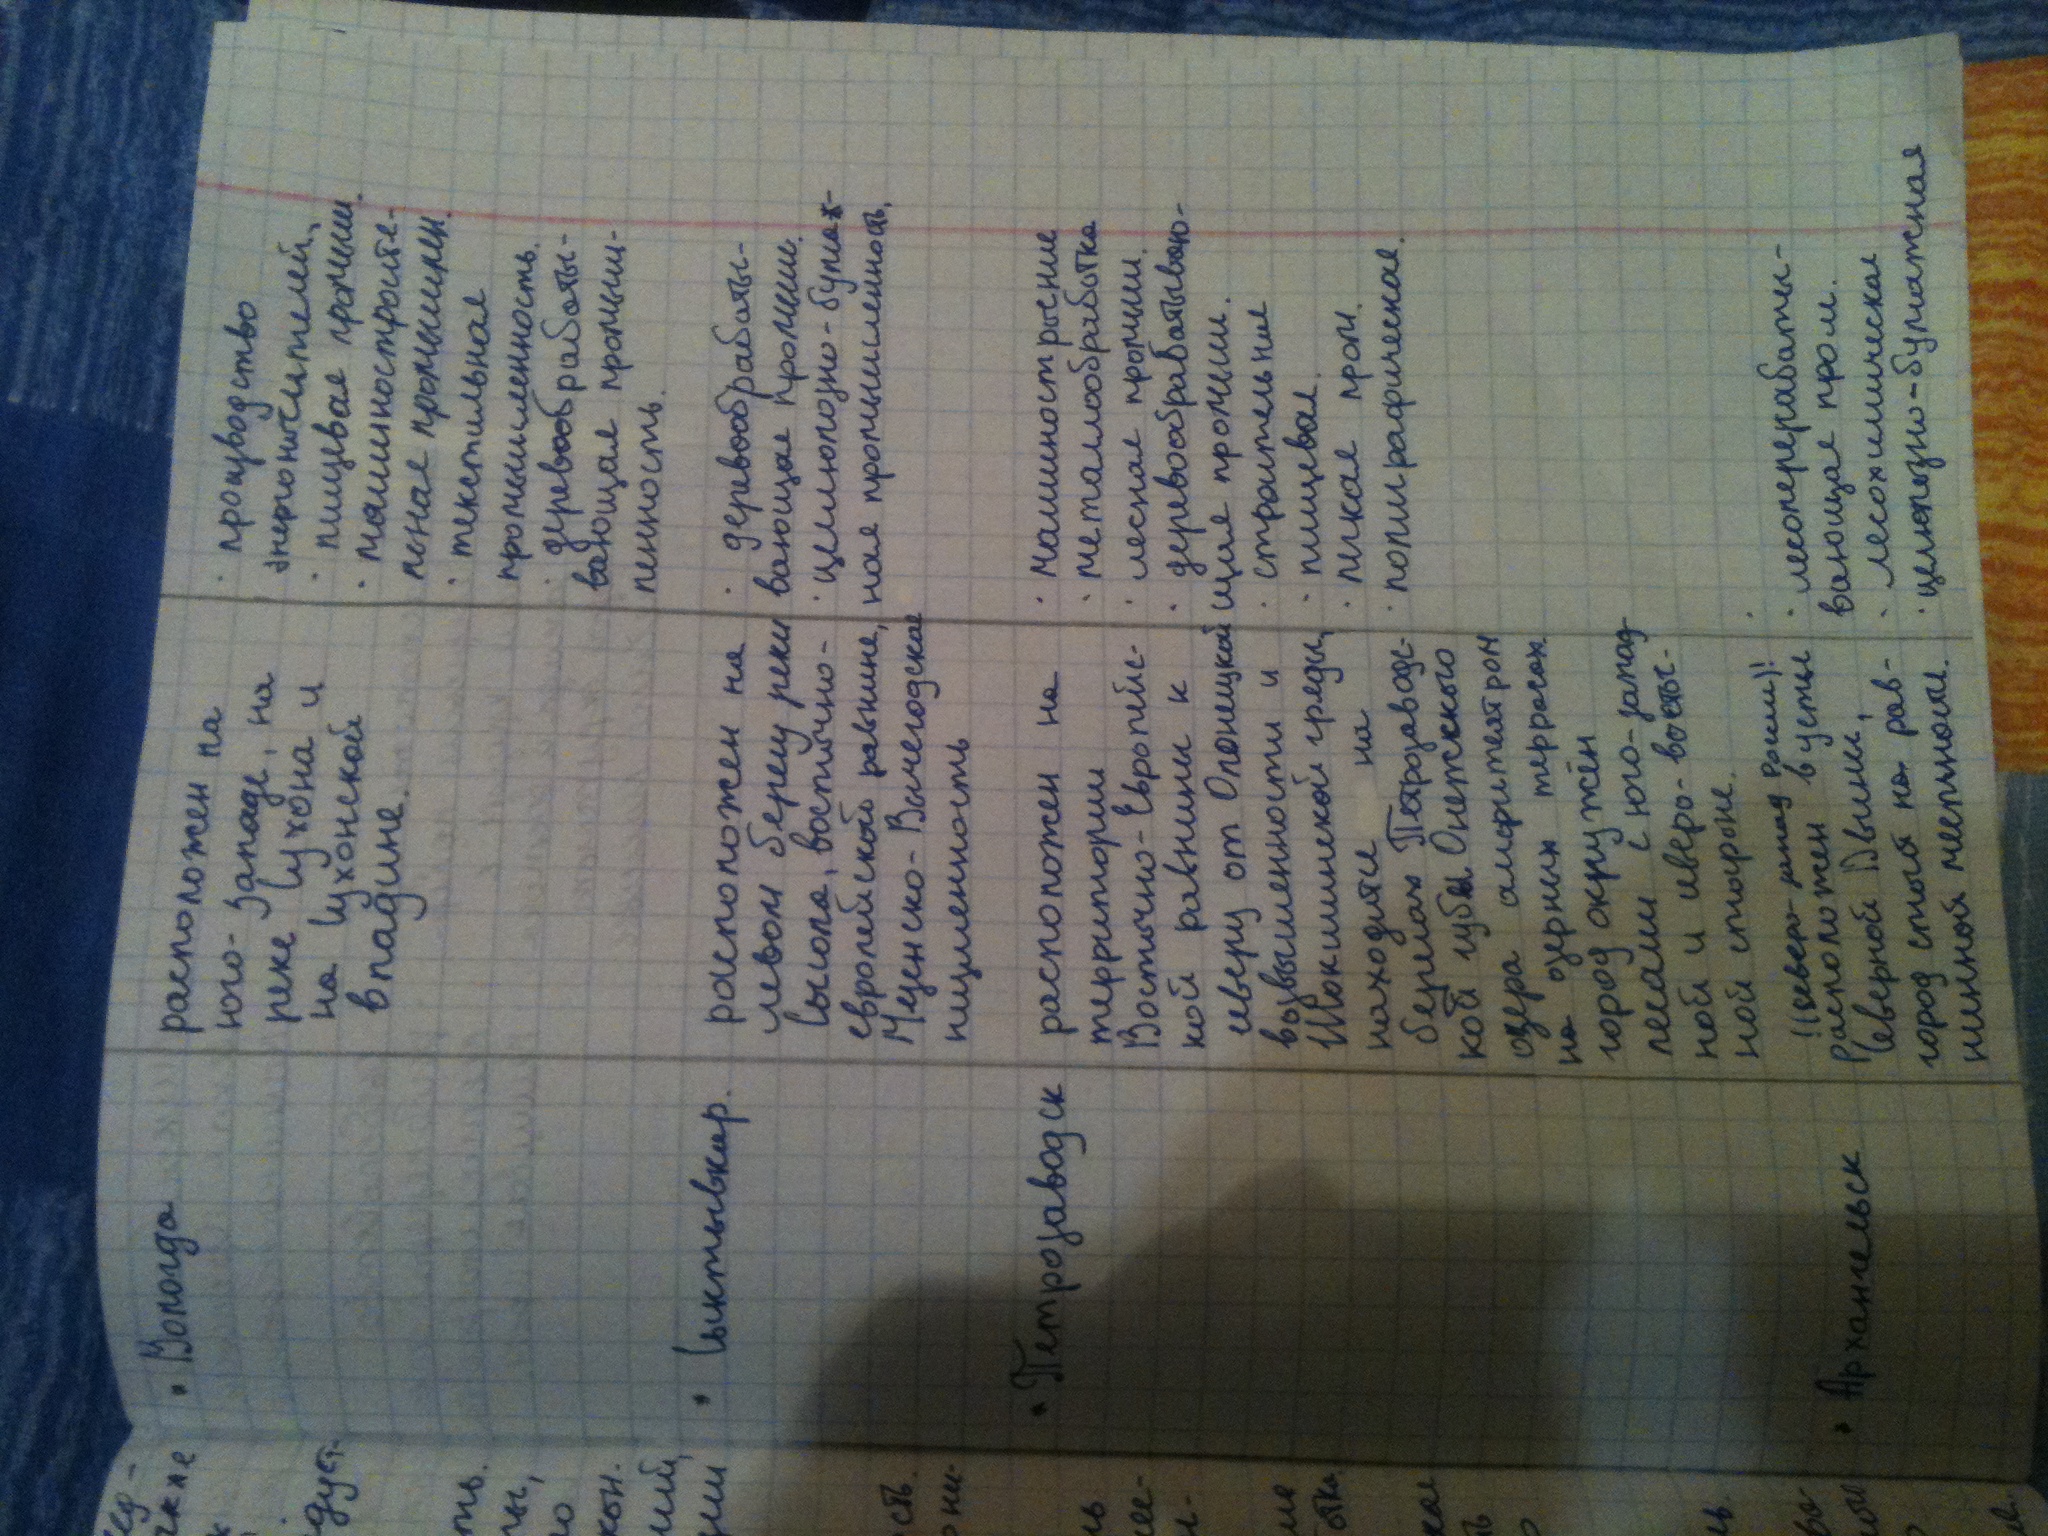 • Вологда
расположен на
юго-западе, на
реке Сухона и
на Сухонской
впадине.
· производство
энергоносителей,
· пищевая промыш.
· машиностроите-
льная промышлен.
· текстильная
промышленность.
· деревообрабаты-
вающая промыш-
ленность.
• Сыктывкар.
расположен на
левом берегу реки
Сысола, восточно-
европейской равнине,
Мезенско-Вычегодская
низменность
· деревообрабаты-
вающая промыш.
· целлюлозно-бумаж-
ная промышленность,
• Петрозаводск
расположен на
территории
Восточно-Европейс-
кой равнины к
северу от Олонецкой
возвышенности и
Шокшинской гряды,
находится на
берегах Петрозаводс-
кой губы Онежского
озера амфитеатром
на озерных террасах
город окружён
лесами с юго-запад-
ной и северо-восточ-
ной стороне.
· Машиностроение
· металлообработка
· лесная промыш.
· деревообрабатываю-
щая промыш.
· строительные
· пищевая.
· легкая пром.
· полиграфическая.
• Архангельск
!!северо-запад России!!
Расположен в устье
Северной Двины,
город стоит на рав-
нинной местности.
· лесоперерабаты-
вающая пром.
· лесохимическая
· целлюлозно-бумажная